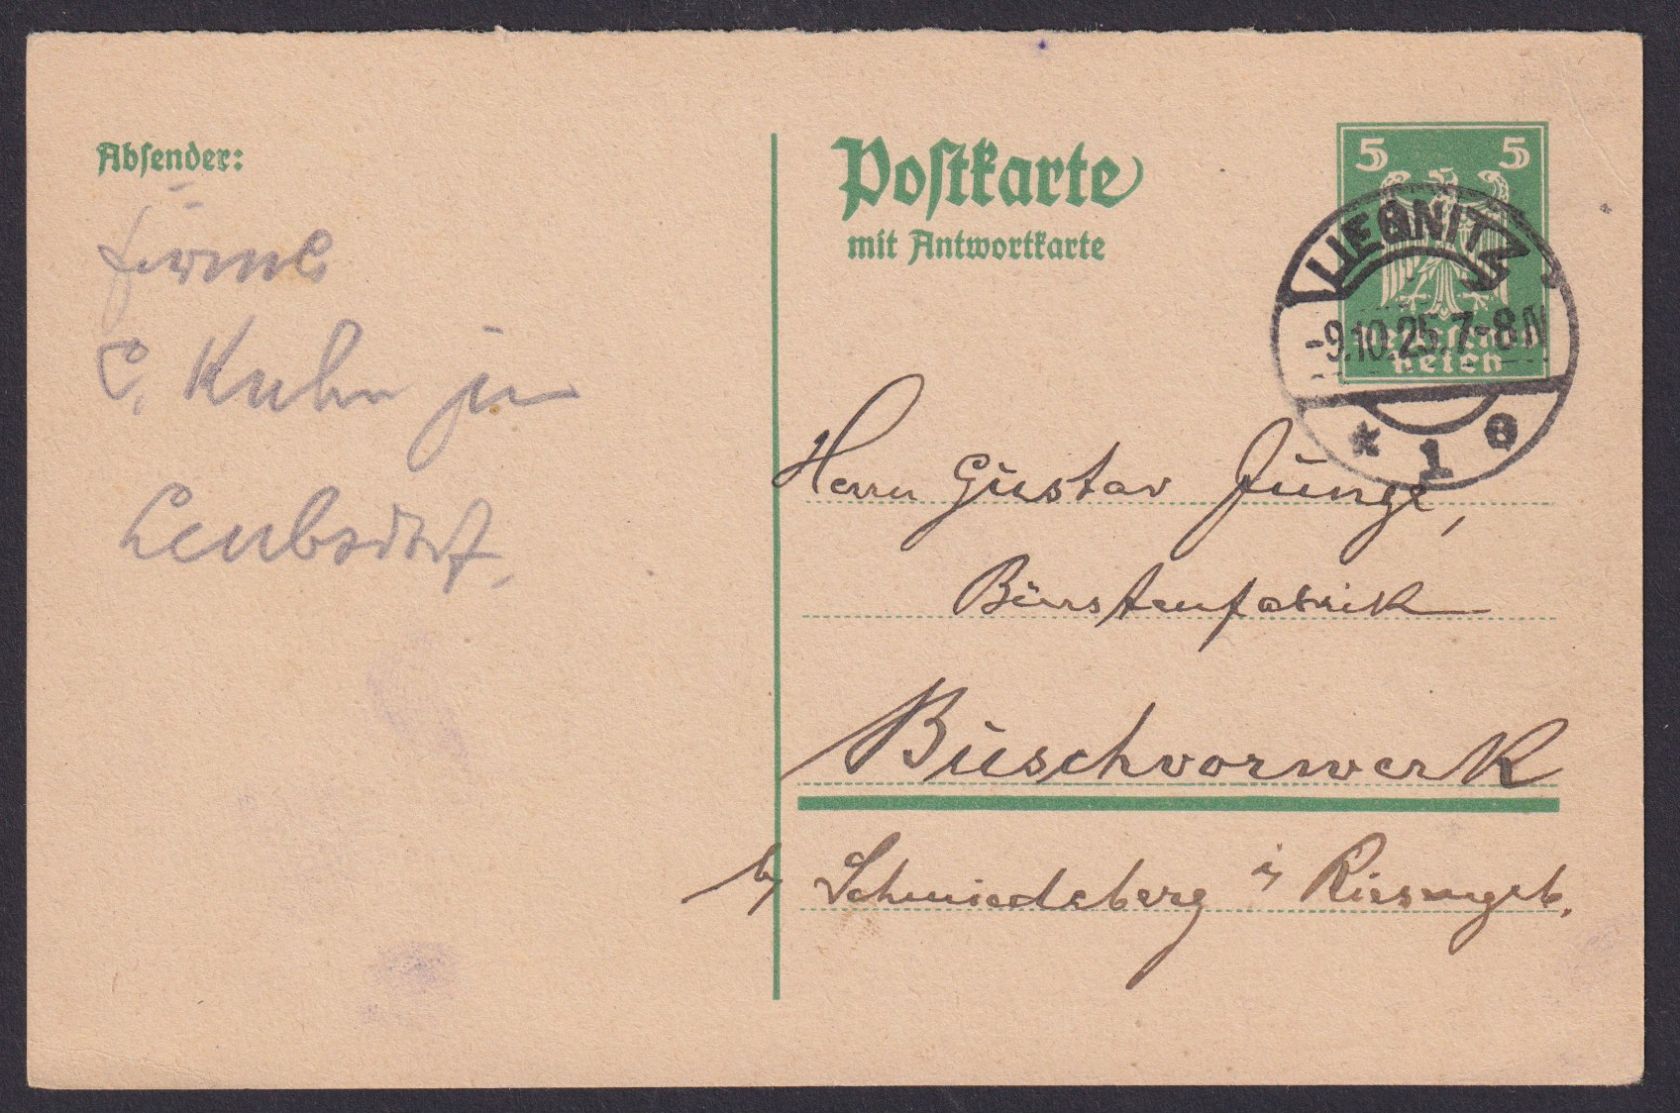 Absender:
Firma
C. Kuhn jun
Leubsdorf.
Postkarte
mit Antwortkarte
5 5
Deutsches
Reich
LIEGNITZ
-9.10.25.7-8N
* 1 e
Herrn Gustav Junge,
Bürstenfabrik
Buschvorwerk
b/ Schmiedeberg i/ Riesengeb.